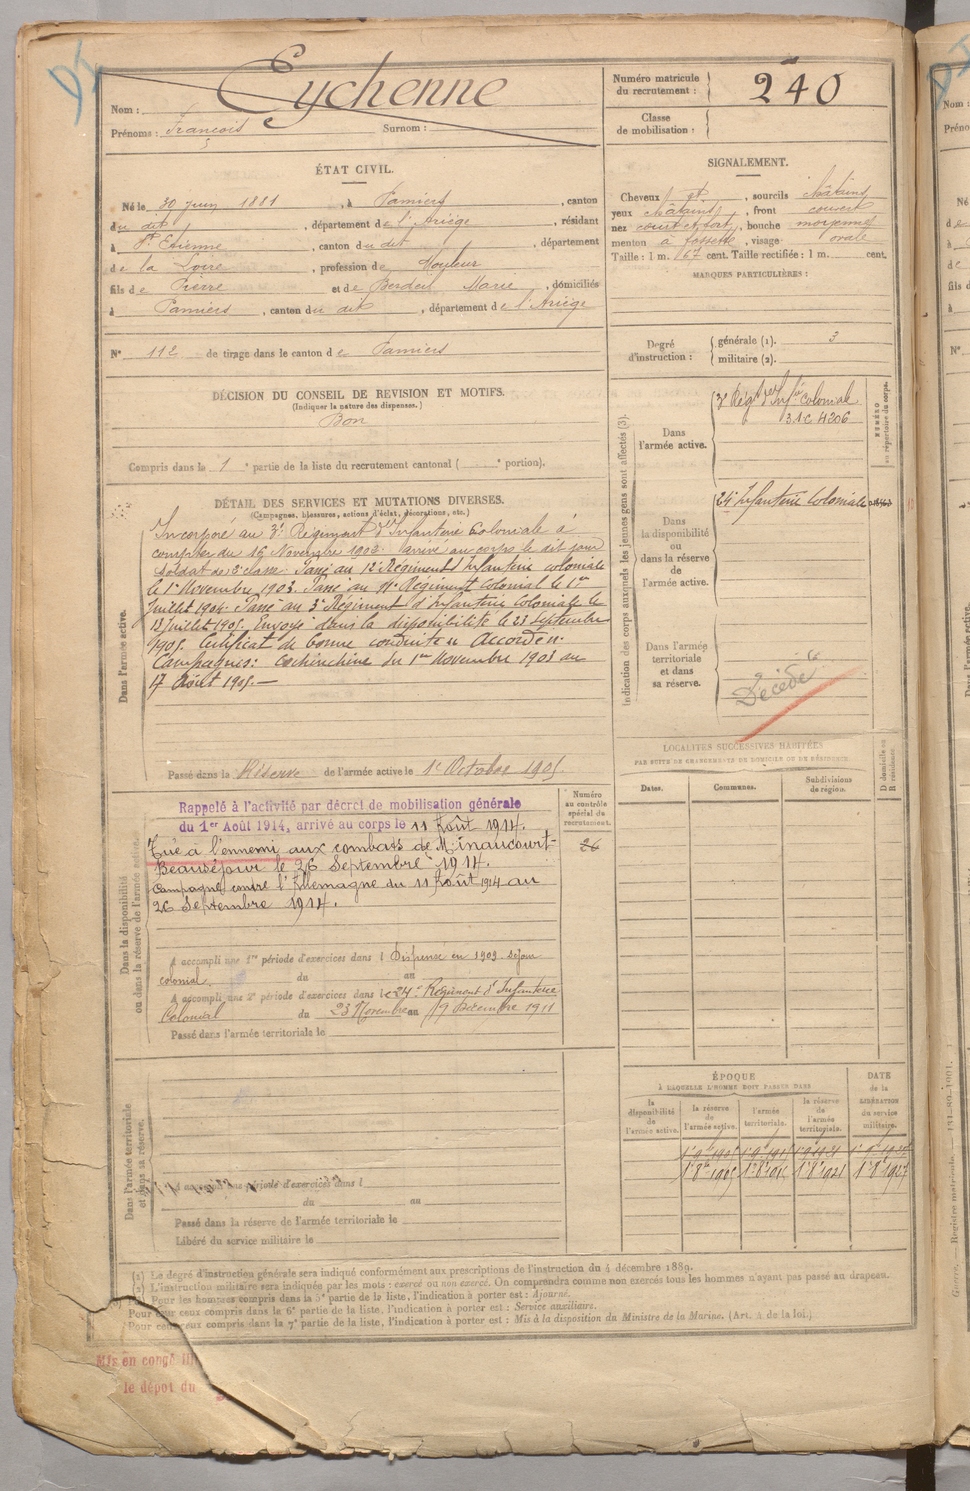 Eychenne
Nom :
Prénoms : François Surnom :
Numéro matricule du recrutement : 240
Classe de mobilisation :
ÉTAT CIVIL.
Né le 30 Juin 1881, à Pamiers, canton
du dit, département de l'Ariège, résidant
à St Etienne, canton du dit, département
de la Loire, profession de Mouleur
fils de Pierre et de Berdeil Marie, domiciliés
à Pamiers, canton du dit, département de l'Ariège
N° 112 de tirage dans le canton de Pamiers
SIGNALEMENT.
Cheveux , sourcils châtains
yeux châtains, front couvert
nez court et fort, bouche moyenne
menton à fossette, visage ovale
Taille : 1 m. 67 cent. Taille rectifiée : 1 m. cent.
MARQUES PARTICULIÈRES :
Degré d'instruction : générale (1). 3
militaire (2).
DÉCISION DU CONSEIL DE REVISION ET MOTIFS.
(Indiquer la nature des dispenses.)
Bon
Compris dans la 1e partie de la liste du recrutement cantonal ( e portion).
DÉTAIL DES SERVICES ET MUTATIONS DIVERSES.
(Campagnes, blessures, actions d'éclat, décorations, etc.)
Dans l'armée active.
Incorporé au 3e Régiment d'Infanterie Coloniale à
compter du 16 Novembre 1902. arrivé au corps le dit jour
soldat de 2e classe. Passé au 12e Régiment d'Infanterie coloniale
le 1er Novembre 1903. Passé au 11e Régiment Colonial le 1er
Juillet 1904. Passé au 3e Régiment d'Infanterie Coloniale le
18 Juillet 1905. Envoyé dans la disponibilité le 23 Septembre
1905. Certificat de bonne conduite "Accordé".
Campagnes : Cochinchine du 1er Novembre 1903 au
17 Août 1905.
Passé dans la Réserve de l'armée active le 1er Octobre 1905.
Indication des corps auxquels les jeunes gens sont affectés (3).
NUMÉRO au répertoire du corps.
Dans l'armée active.
3e Régt d'Infie coloniale
3.1.C. 4206
Dans la disponibilité ou dans la réserve de l'armée active.
24e Infanterie Coloniale
Dans l'armée territoriale et dans sa réserve.
Décédé
LOCALITÉS SUCCESSIVES HABITÉES
PAR SUITE DE CHANGEMENTS DE DOMICILE OU DE RÉSIDENCE.
Dates. Communes. Subdivisions de région. D domicile ou R résidence.
Dans la disponibilité ou dans la réserve de l'armée active.
Numéro au contrôle spécial du recrutement.
26
Rappelé à l'activité par décret de mobilisation générale
du 1er Août 1914, arrivé au corps le 11 Août 1914.
Tué à l'ennemi aux combats de Minaucourt-
Beauséjour le 26 Septembre 1914.
Campagne contre l'Allemagne du 11 Août 1914 au
26 Septembre 1914.
A accompli une 1re période d'exercices dans l Dispensé en 1909. Séjour
colonial. du au
A accompli une 2e période d'exercices dans le 24e Régiment d'Infanterie
Colonial du 23 Novembre au 9 Décembre 1911
Passé dans l'armée territoriale le
Dans l'armée territoriale et dans sa réserve.
A accompli une période d'exercices dans l
du au
Passé dans la réserve de l'armée territoriale le
Libéré du service militaire le
ÉPOQUE
À LAQUELLE L'HOMME DOIT PASSER DANS
DATE de la LIBÉRATION du service militaire.
la disponibilité de l'armée active. la réserve de l'armée active. l'armée territoriale. la réserve de l'armée territoriale.
(1) Le degré d'instruction générale sera indiqué conformément aux prescriptions de l'instruction du 4 décembre 1889.
(2) L'instruction militaire sera indiquée par les mots : exercé ou non exercé. On comprendra comme non exercés tous les hommes n'ayant pas passé au drapeau.
(3) Pour les hommes compris dans la 5e partie de la liste, l'indication à porter est : Ajourné.
Pour ceux compris dans la 6e partie de la liste, l'indication à porter est : Service auxiliaire.
Pour ceux compris dans la 7e partie de la liste, l'indication à porter est : Mis à la disposition du Ministre de la Marine. (Art. 4 de la loi.)
Mis en congé
le dépôt du